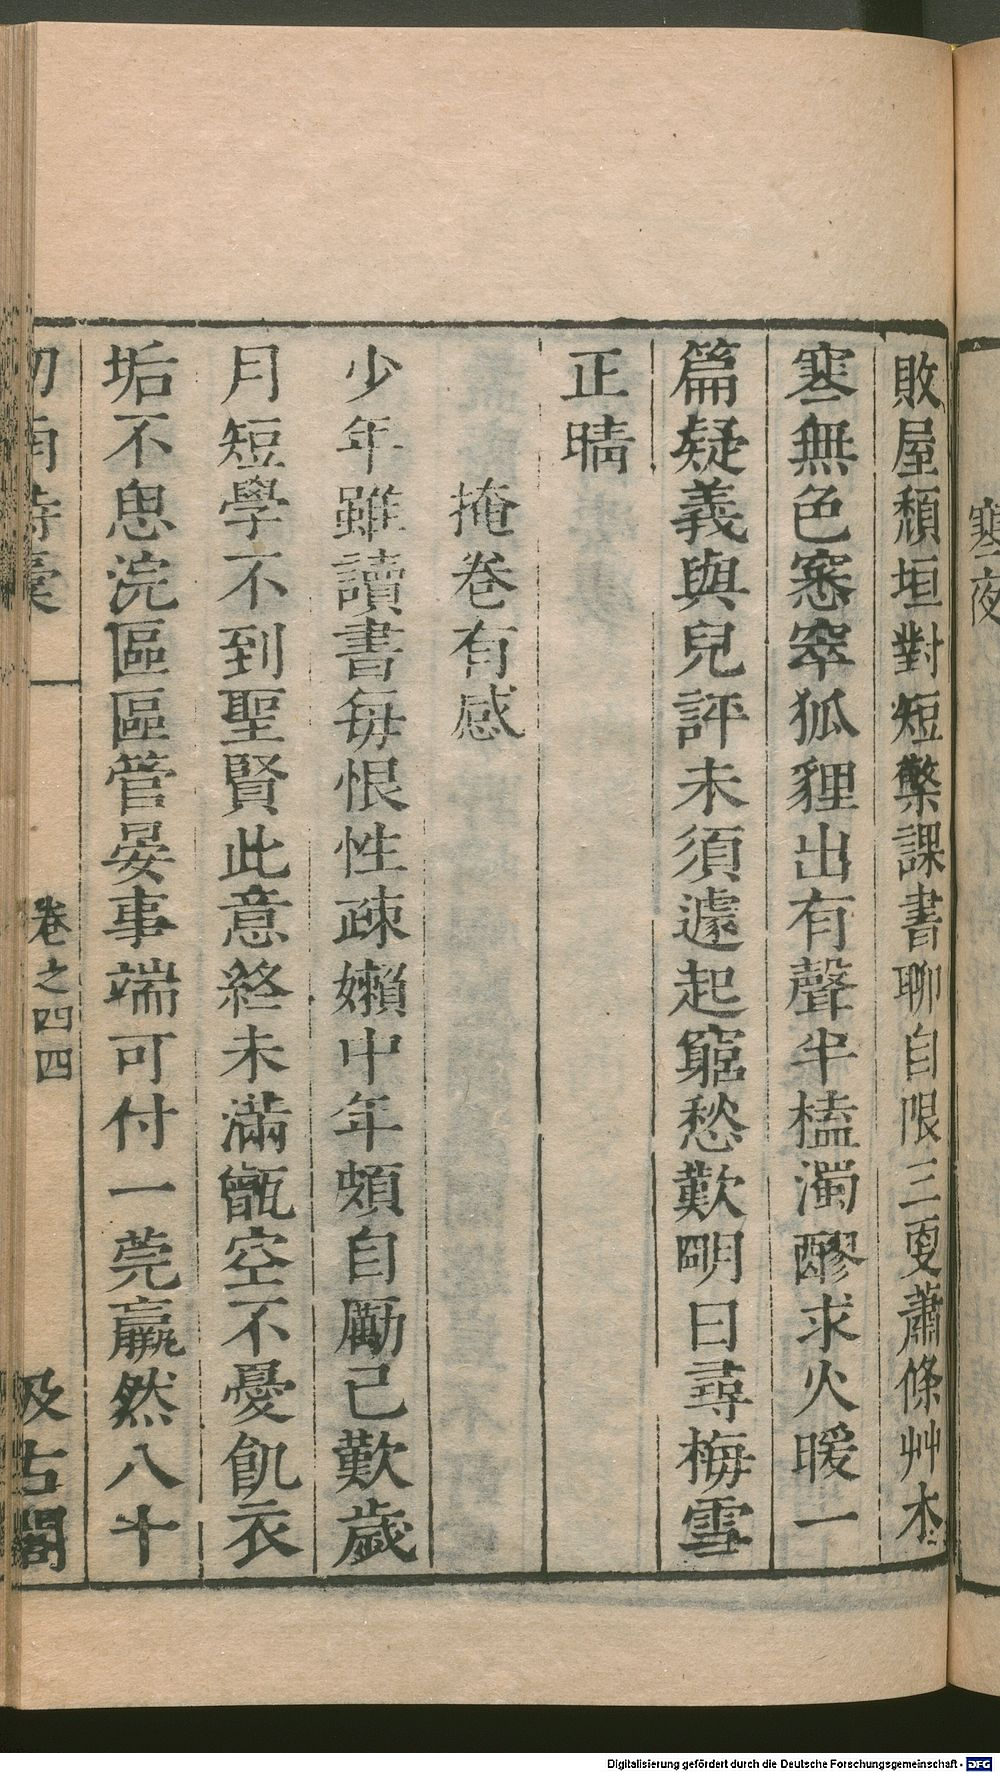 寒夜
敗屋頹垣對短檠課書聊自限三更蕭條艸木
寒無色窸窣狐狸出有聲半榼濁醪求火暖一
篇疑義與兒評未須遽起窮愁歎明日尋梅雪
正晴
掩卷有感
少年雖讀書每恨性疎嬾中年頗自勵已歎歲
月短學不到聖賢此意終未滿甑空不憂飢衣
垢不思浣區區管晏事端可付一莞羸然八十
劒南詩稾
卷之四四
汲古閣
Digitalisierung gefördert durch die Deutsche Forschungsgemeinschaft - DFG